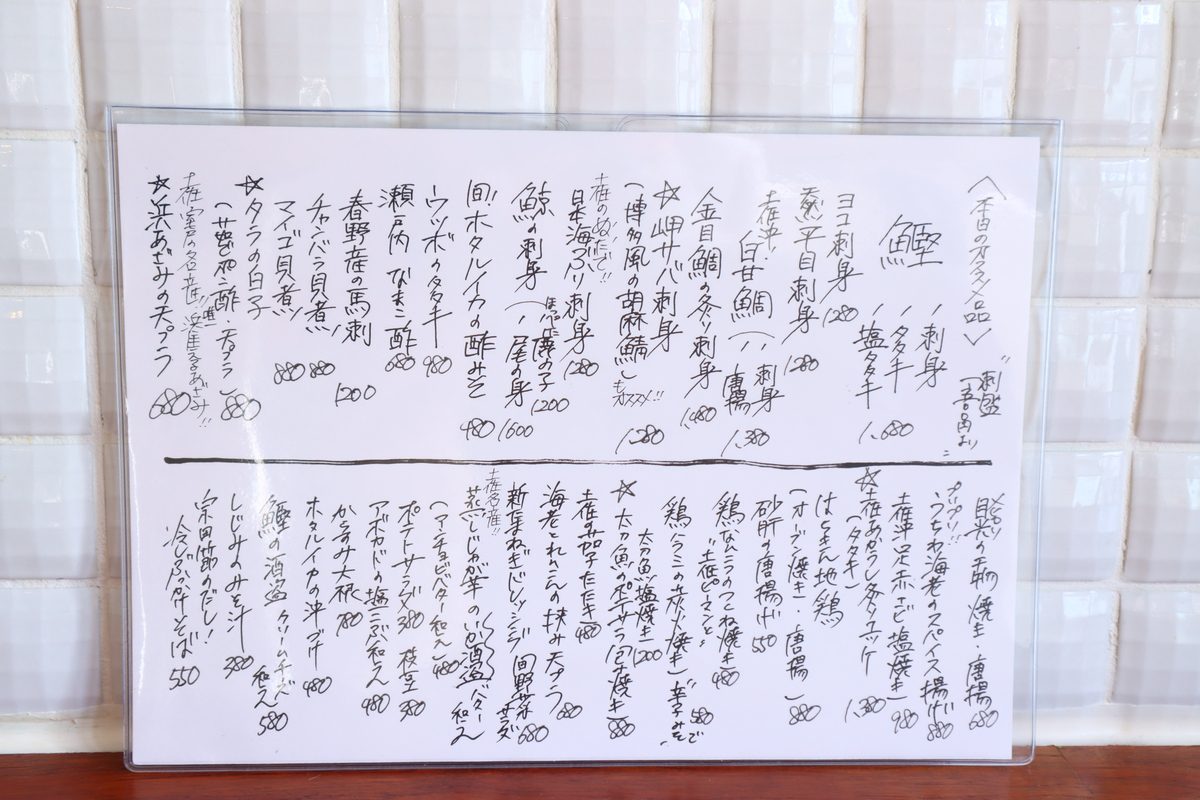 〈本日のオススメ品〉
刺盛
鰹
刺身
タタキ
塩タタキ
1,680
ヨコ刺身 1280
天然平目刺身 1280
土佐沖!
白甘鯛
刺身
唐揚
1,380
金目鯛の炙り刺身 1,480
☆岬サバ刺身
(博多風の胡麻鯖)も
オススメ!!
1,280
土佐のぬたで!!
日本海ぶり刺身 1280
鯨の刺身
鹿の子 1200
尾の身 1600
旬!ホタルイカの酢みそ 980
ウツボのタタキ 980
瀬戸内なまこ酢 680
春野産の馬刺 1200
チャンバラ貝煮 880
マイゴ貝煮 880
☆タラの白子
(ポン酢 天プラ) 880
土佐室戸の名産!!
☆浜あざみの天プラ 680
目光の干物焼き・唐揚 680
プリップリ!!
うちわ海老のスパイス揚げ 880
土佐沖 足赤エビ塩焼き 980
☆土佐あかうし炙りユッケ
(タタキ)
1,380
はちきん地鶏
(オーブン焼き・唐揚) 880
砂肝の唐揚げ 550
鶏なんこつのつくね焼き 480
土佐ピーマンと
鶏ハラミの炭火焼き 辛みそで 580
太刀魚塩焼き 1200
☆太刀魚のポテサラ包み焼き 880
土佐の茄子たたき 480
海老とれんこんの挟み天プラ 680
新玉ねぎドレッシング 旬野菜サラダ 680
土佐名産!!
蒸しじゃが芋のいか酒盗バター和え
(アンチョビバター和え) 480
ポテトサラダ 380 枝豆 380
アボカドの塩こぶ和え 480
からすみ大根 780
ホタルイカの沖漬け 480
鰹の酒盗 クリームチーズ和え 580
しじみのみそ汁 380
宗田節のだし!
冷しぶっかけそば 550